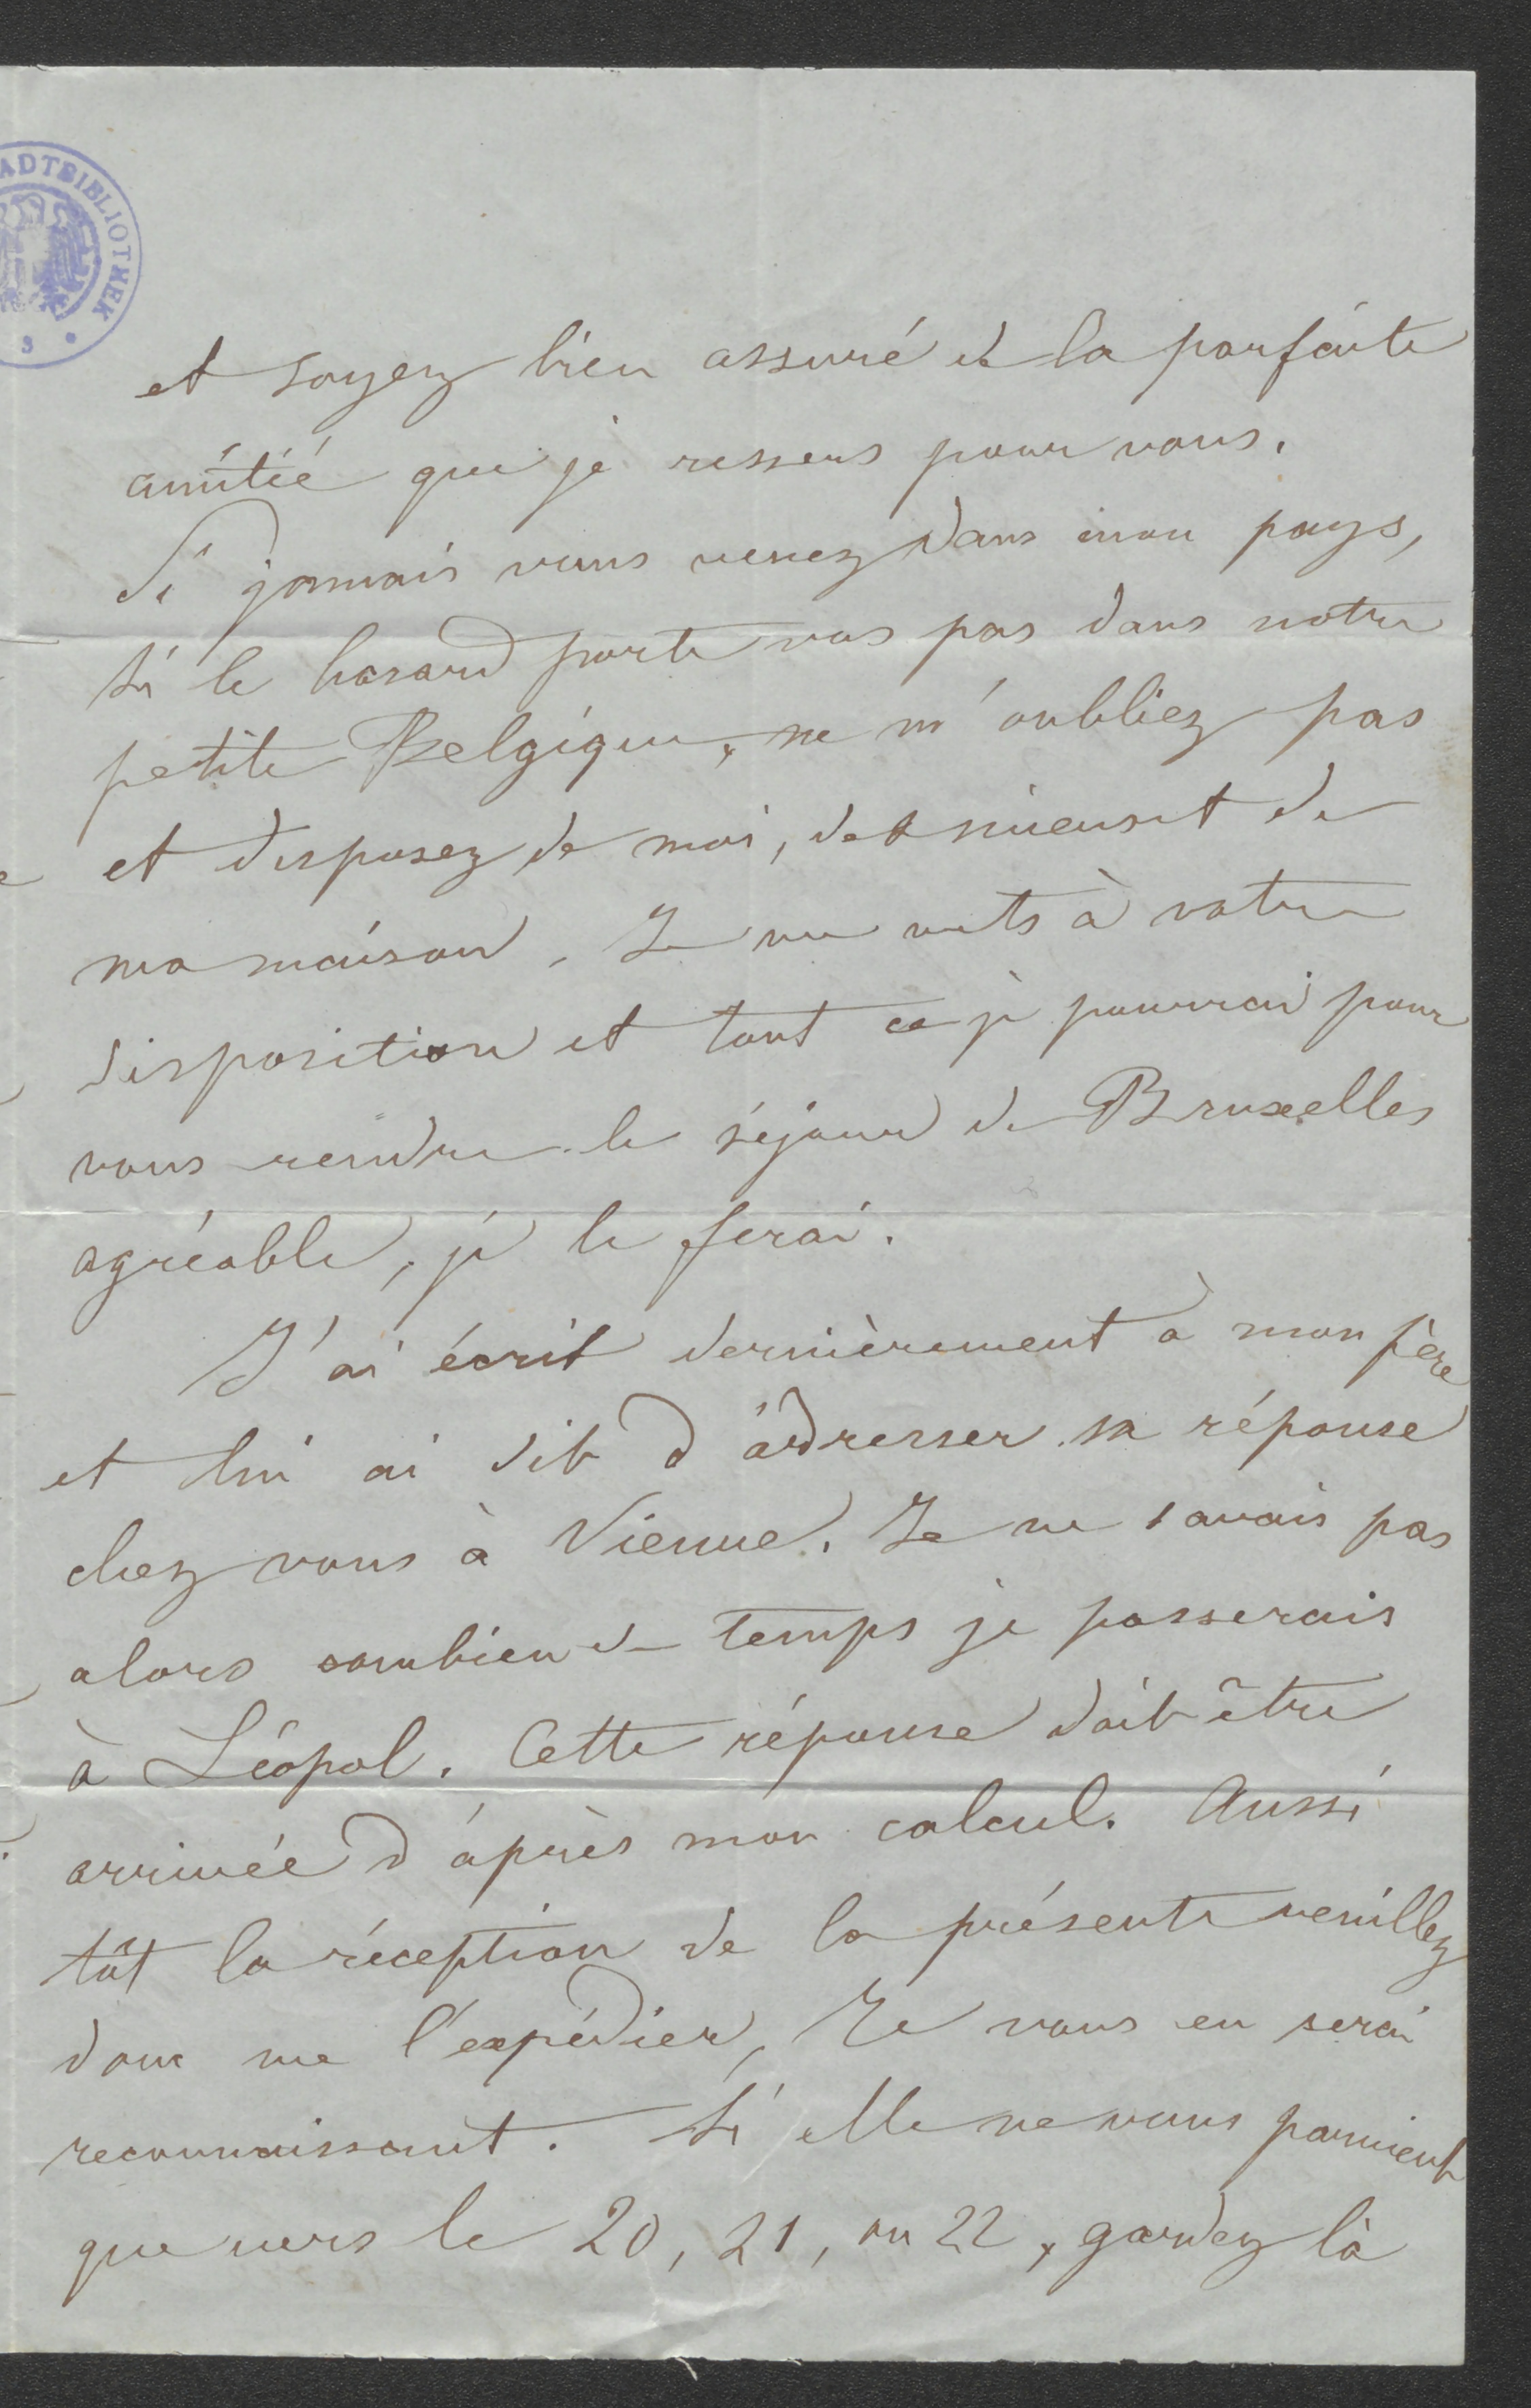 ADTBIBLIOTHEK
et soyez bien assuré de la parfaite
amitié que je ressens pour vous.
Si jamais vous venez dans mon pays,
si le hasard porte vos pas dans notre
petite Belgique, ne m'oubliez pas
et disposez de moi, de et de
ma maison. Je me mets à votre
disposition et tout ce je pourrai pour
vous rendre le séjour de Bruxelles
agréable, je le ferai.
J'ai écrit dernièrement à mon père
et lui ai dit d'adresser sa réponse
chez vous à Vienne. Je ne savais pas
alors combien de temps je passerais
à Léopol. Cette réponse doit être
arrivée d'après mon calcul. Aussi
tôt la réception de la présente veuillez
donc me l'expédier, Je vous en serai
reconnaissant. Si elle ne vous parvient
que vers le 20, 21, ou 22, gardez là